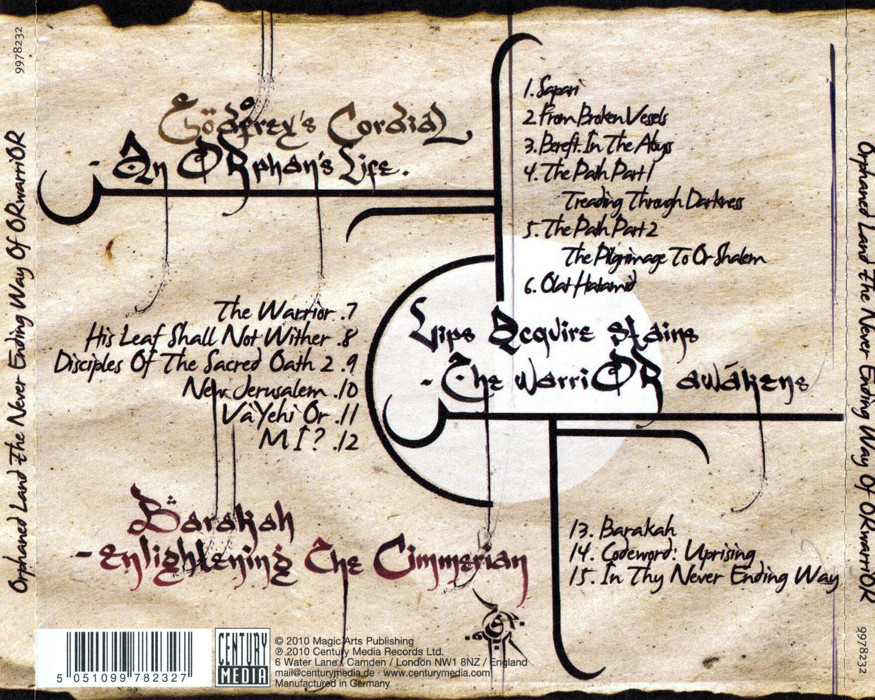 9978232
Orphaned Land The Never Ending Way Of ORwarriOR
Godfrey's Cordial
- An ORphan's Life.
1. Sapari
2. From Broken Vessels
3. Bereft In The Abyss
4. The Path Part 1
Treading Through Darkness
5. The Path Part 2
The Pilgrimage To Or Shalem
6. Olat Hatamid
The Warrior .7
His Leaf Shall Not Wither .8
Disciples Of The Sacred Oath 2 .9
New Jerusalem .10
Vâ Yehi Or .11
M Î ? .12
Lips Acquire Stains
- The WarriOR awakens
Barakah
- Enlightening The Cimmerian
13. Barakah
14. Codeword: Uprising
15. In Thy Never Ending Way
5 051099 782327
CENTURY
MEDIA
© 2010 Magic Arts Publishing
℗ 2010 Century Media Records Ltd.
6 Water Lane / Camden / London NW1 8NZ / England
mail@centurymedia.de · www.centurymedia.com
Manufactured in Germany.
Orphaned Land The Never Ending Way Of ORwarriOR
9978232